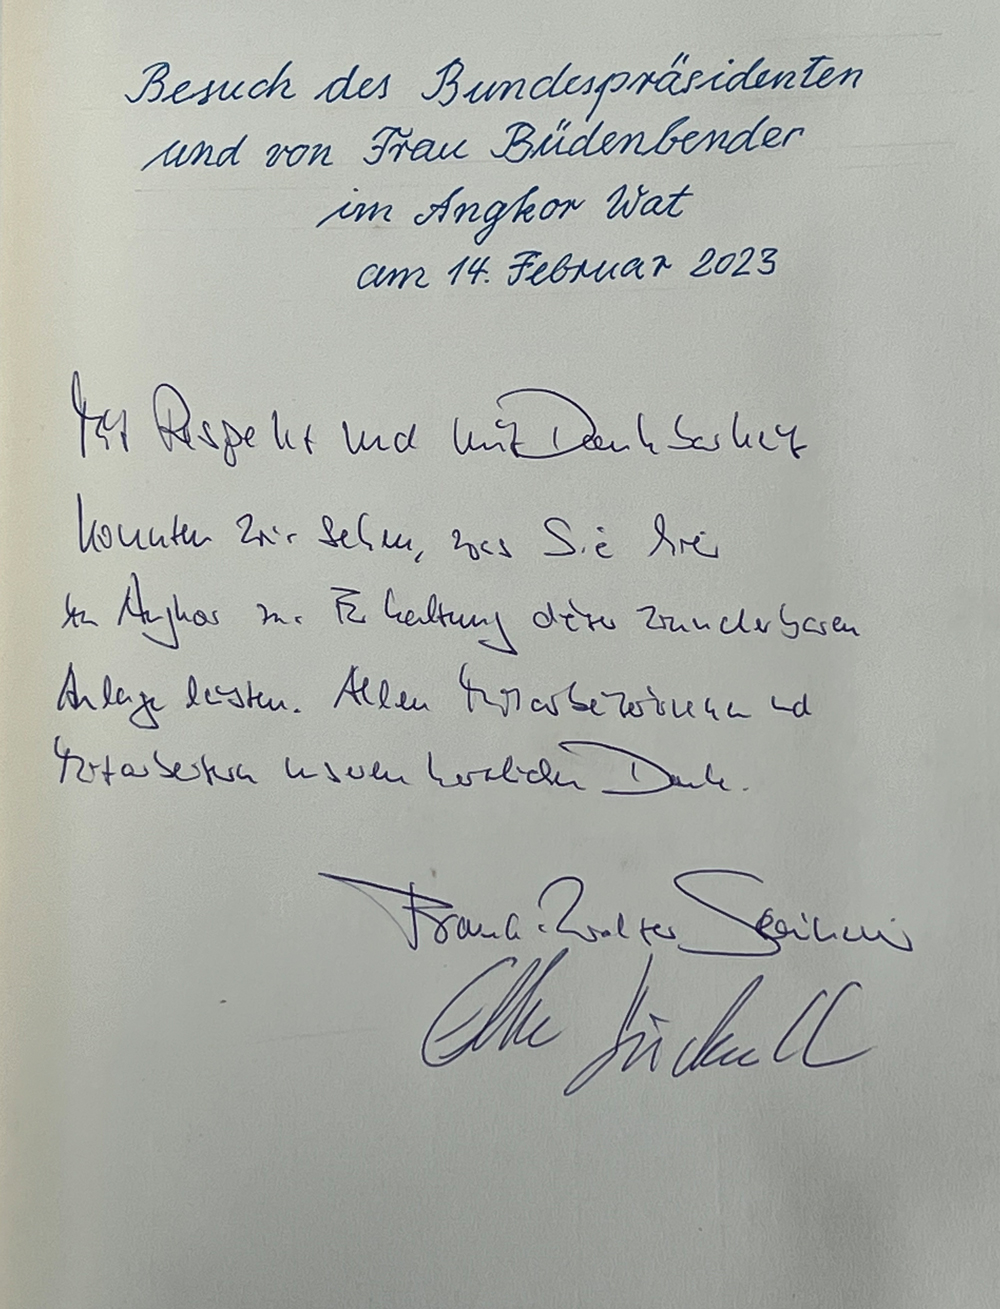 Besuch des Bundespräsidenten
und von Frau Büdenbender
im Angkor Wat
am 14. Februar 2023
Mit Respekt und mit Dankbarkeit
konnten wir sehen, was Sie hier
in Angkor zur Erhaltung dieser wunderbaren
Anlage leisten. Allen Mitarbeiterinnen und
Mitarbeitern unseren herzlichen Dank.
Frank-Walter Steinmeier
Elke Büdenbender